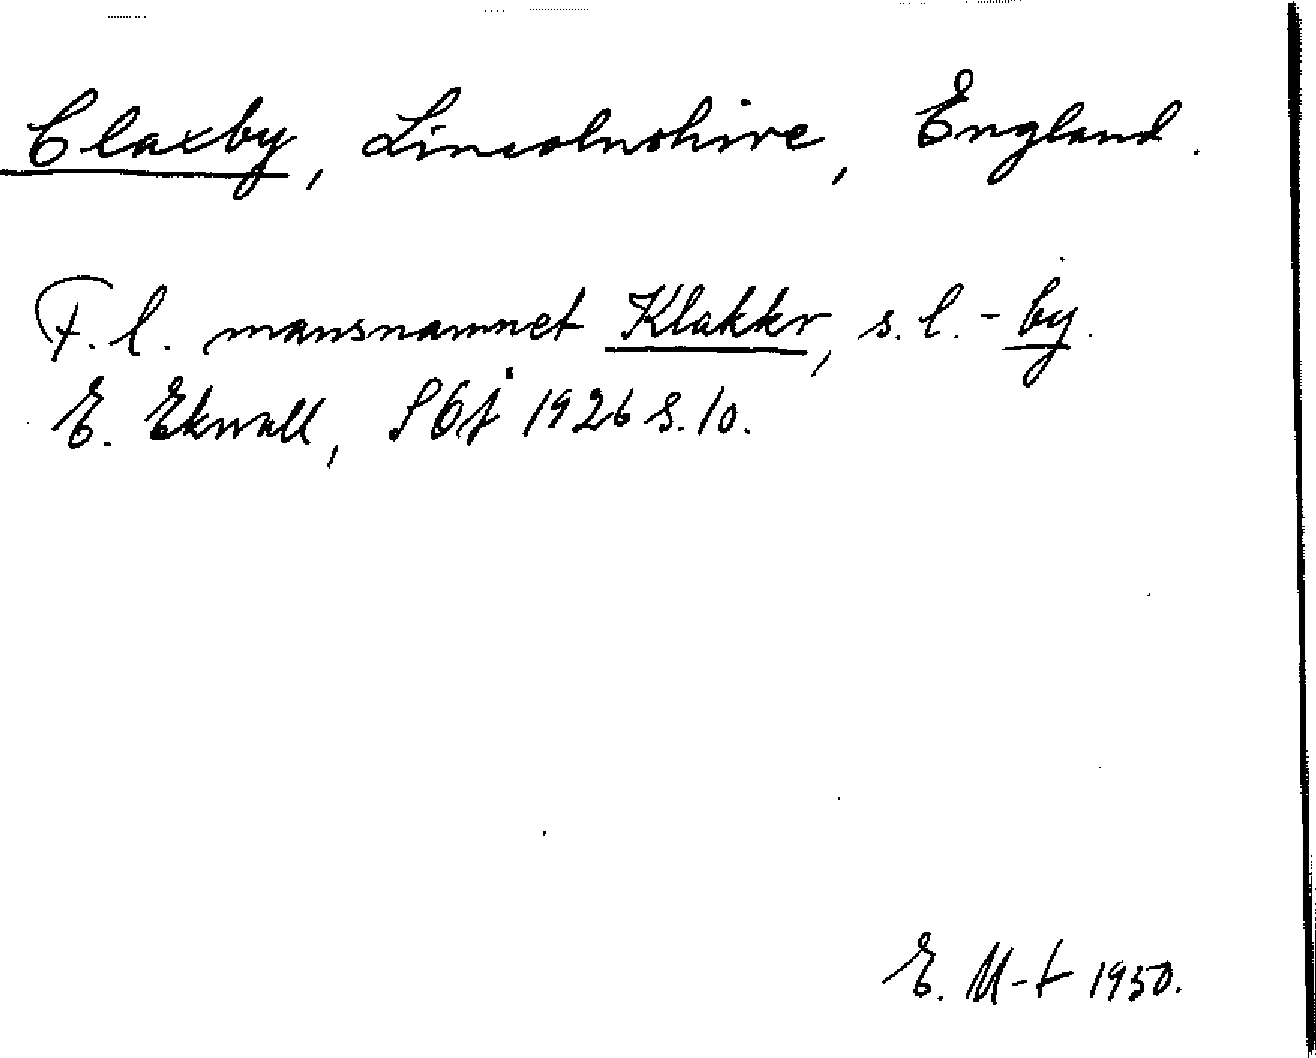 Claxby, Lincolnshire, England.
F. l. mansnamnet Klakkr, s. l. - by.
E. Ekwall, SGT 1926 s. 10.
E. M-t 1950.